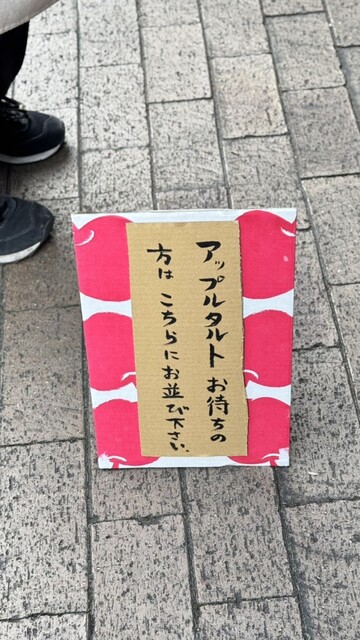 アップルタルトお待ちの
方はこちらにお並び下さい、